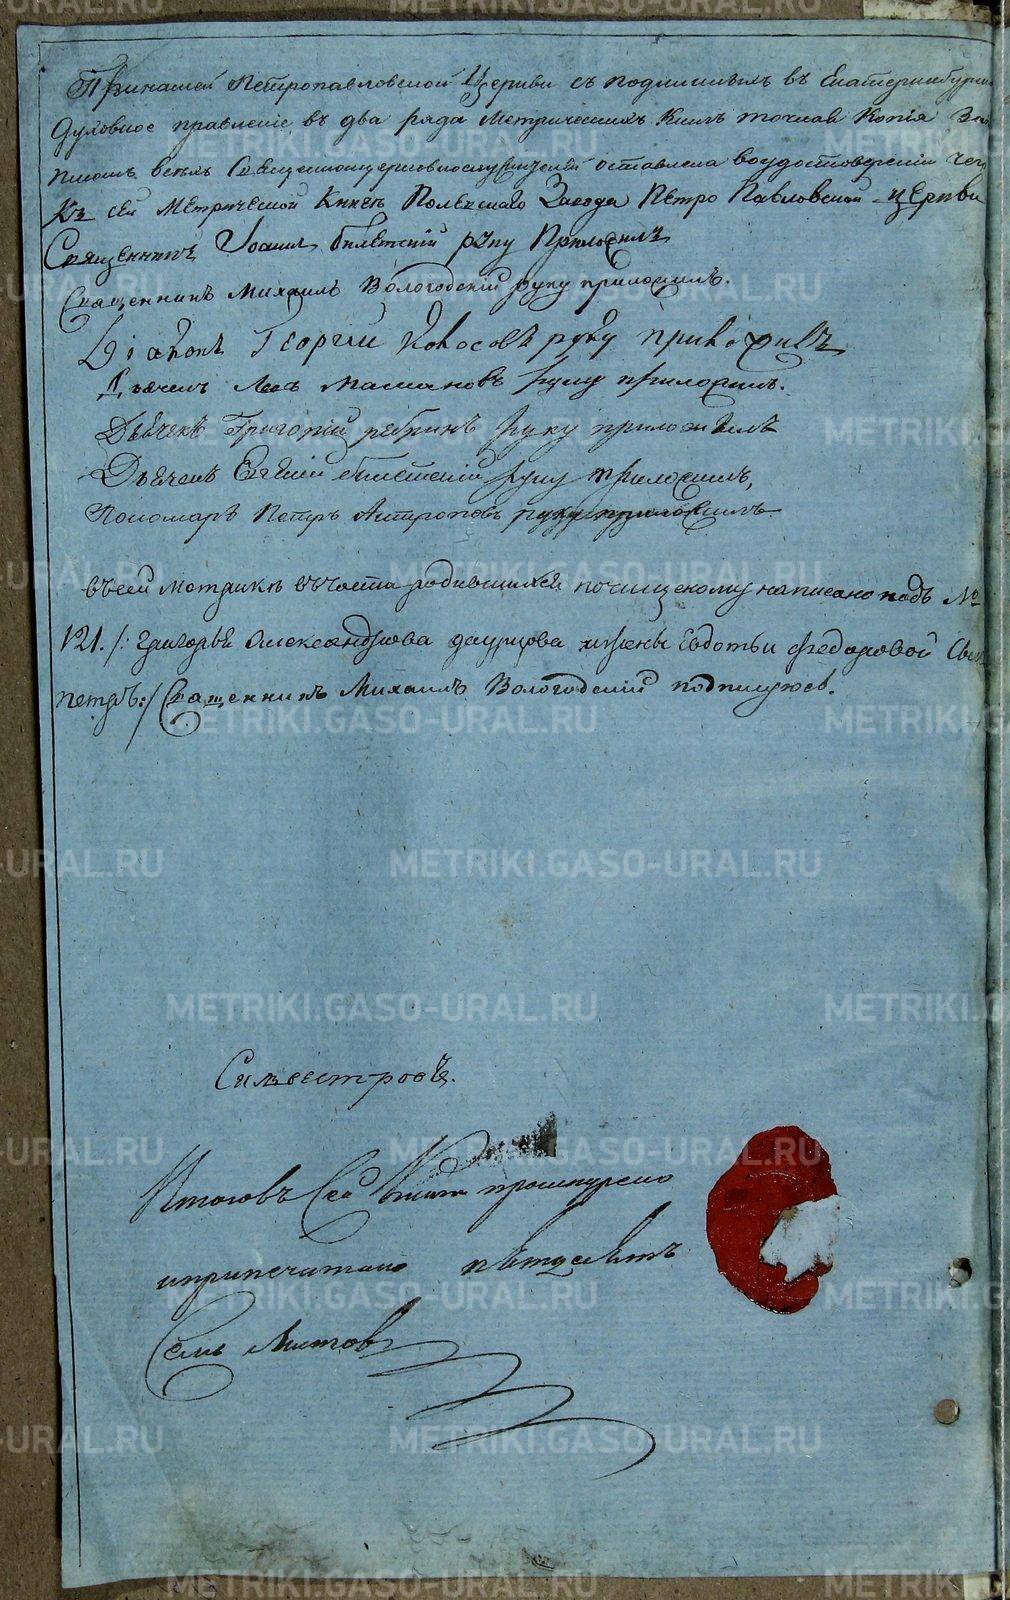 При нашей Петропавловской Церкви съ подлинныхъ въ Екатеринбург
Духовное правленіе въ два ряда метрическихъ книгъ точная Копія За
писомъ всѣмъ Священноцерковнослужителей оставлена во удостовереніи чего
Къ сей Метрической Книге Полевскаго Завода Петро Павловской церкви
Священникъ Іоаннъ билетскій руку Приложилъ
Священникъ Михаилъ Вологодскій руку приложилъ.
Діаконъ Георгій Кокосовъ руку приложилъ
Дьячекъ руку приложилъ.
Дьячекъ Григорій ребринъ руку приложилъ
Дьячекъ руку приложилъ,
Пономарь Петръ Антроповъ руку приложилъ.
въсей метрике въчасти родившихся почищеному написано подъ №
121. /: Григорья Александрова жены Евдотьи Федоровой
петръ:/ Священникъ Михаилъ Вологодскій подписуюсь.
Сильвестровъ.
Итоговъ Сей Книги прошнурено
иприпечатано пѣтдесятъ
Семь Листовъ
METRIKI.GASO-URAL.RU